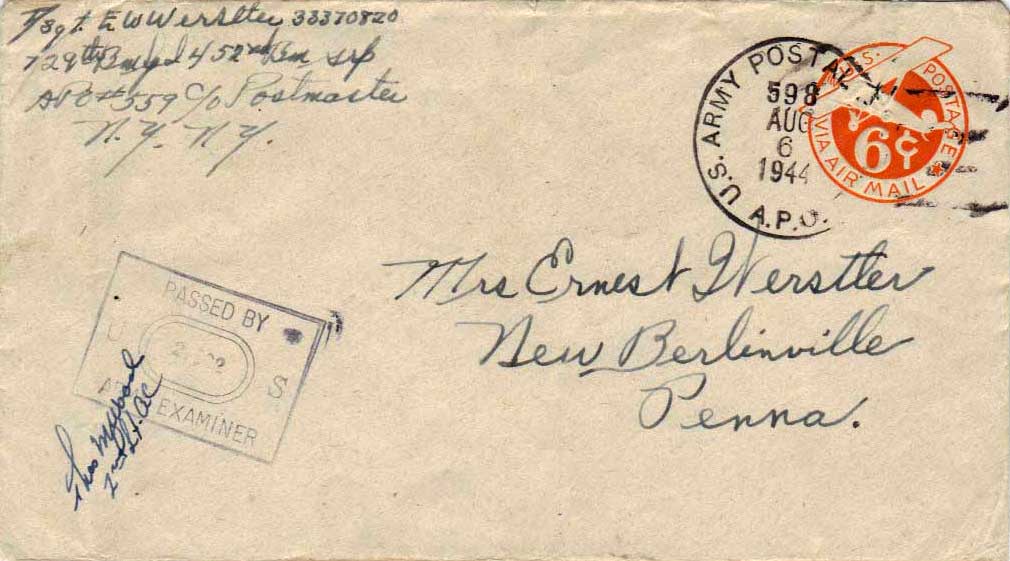 T/Sgt. E W Werstler 33370820
729th Bmb sqd 452nd Bm Grp
APO #559 c/o Postmaster
N.Y. N.Y.
U.S. ARMY POSTAL
A.P.O.
598
AUG
6
1944
U.S. POSTAGE
VIA AIR MAIL
6¢
Mrs Ernest Werstler
New Berlinville
Penna.
PASSED BY
U S
ARMY EXAMINER
2nd Lt. AC